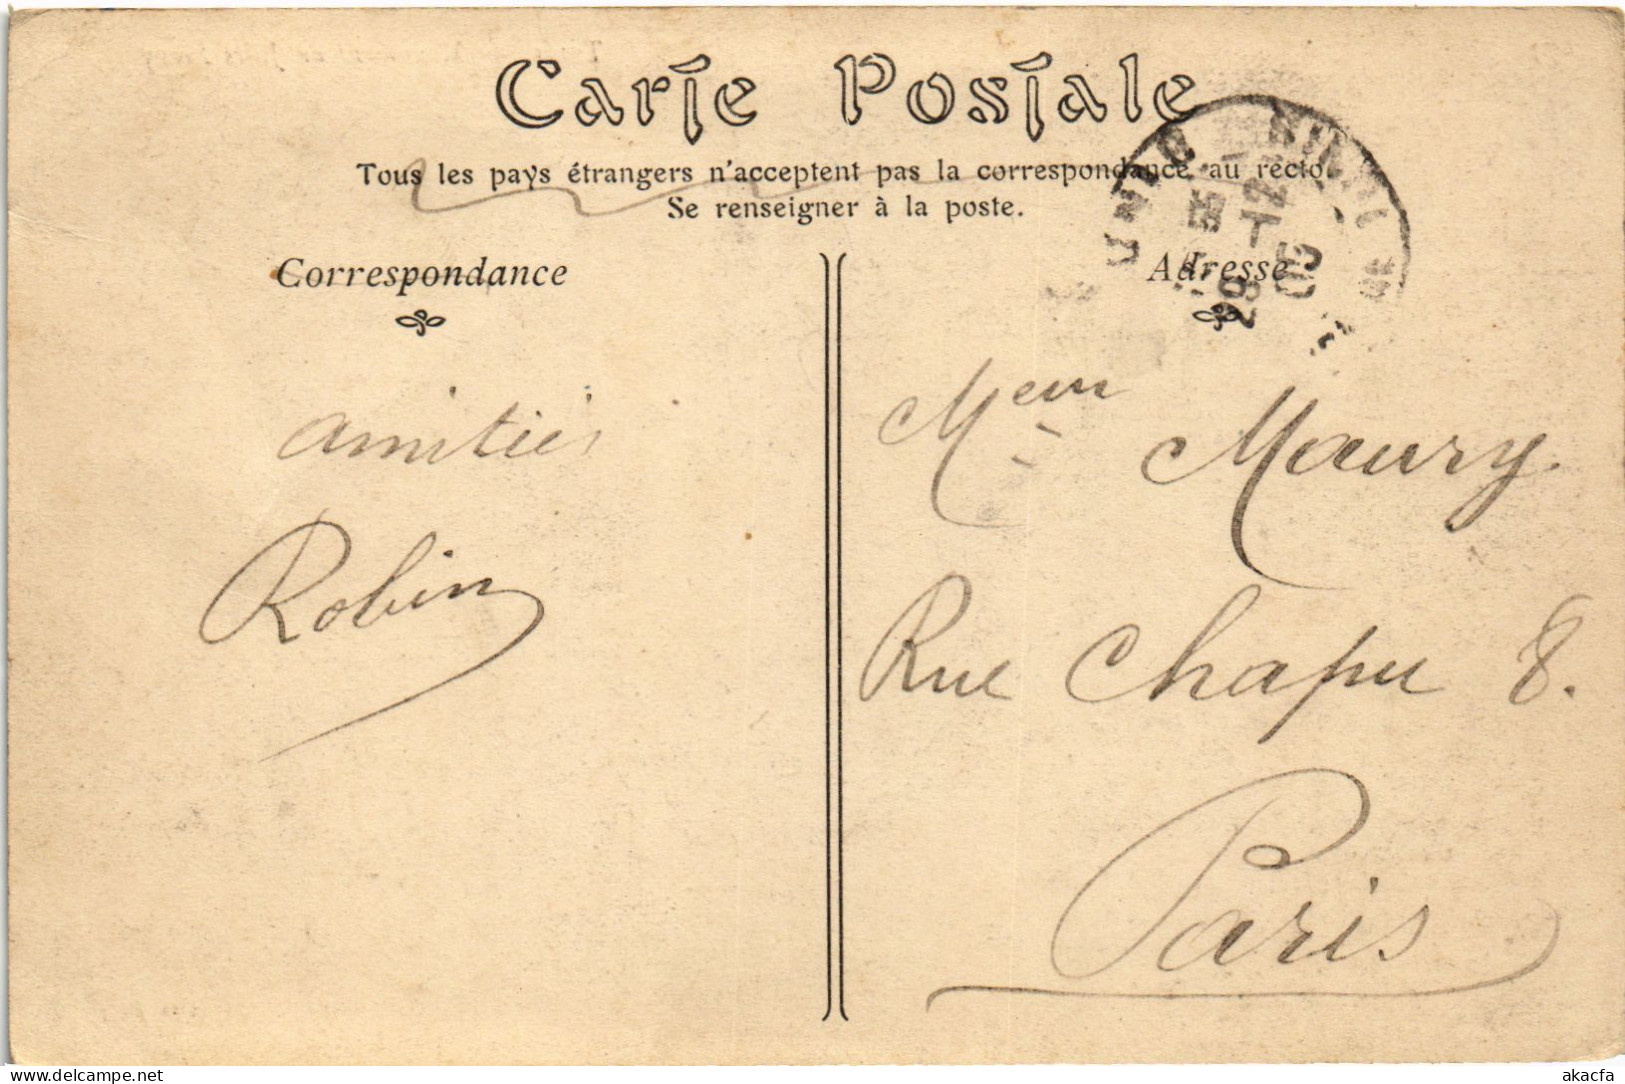 Carte Postale
Tous les pays étrangers n'acceptent pas la correspondance au recto.
Se renseigner à la poste.
Correspondance
Adresse
amitiés
Robin
Mem Maury
Rue Chapu 8.
Paris
akacfa